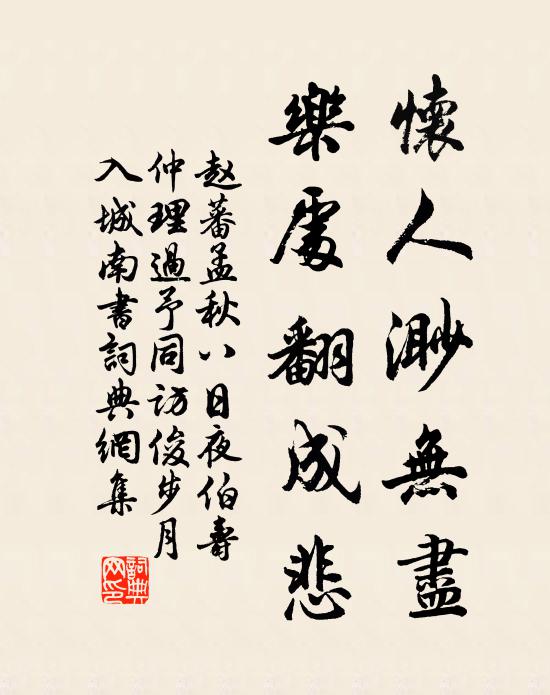 懷人渺無盡
樂處翻成悲
赵蕃孟秋八日夜伯壽
仲理過予同访俊步月
入城南書詞典網集
詞典
网印